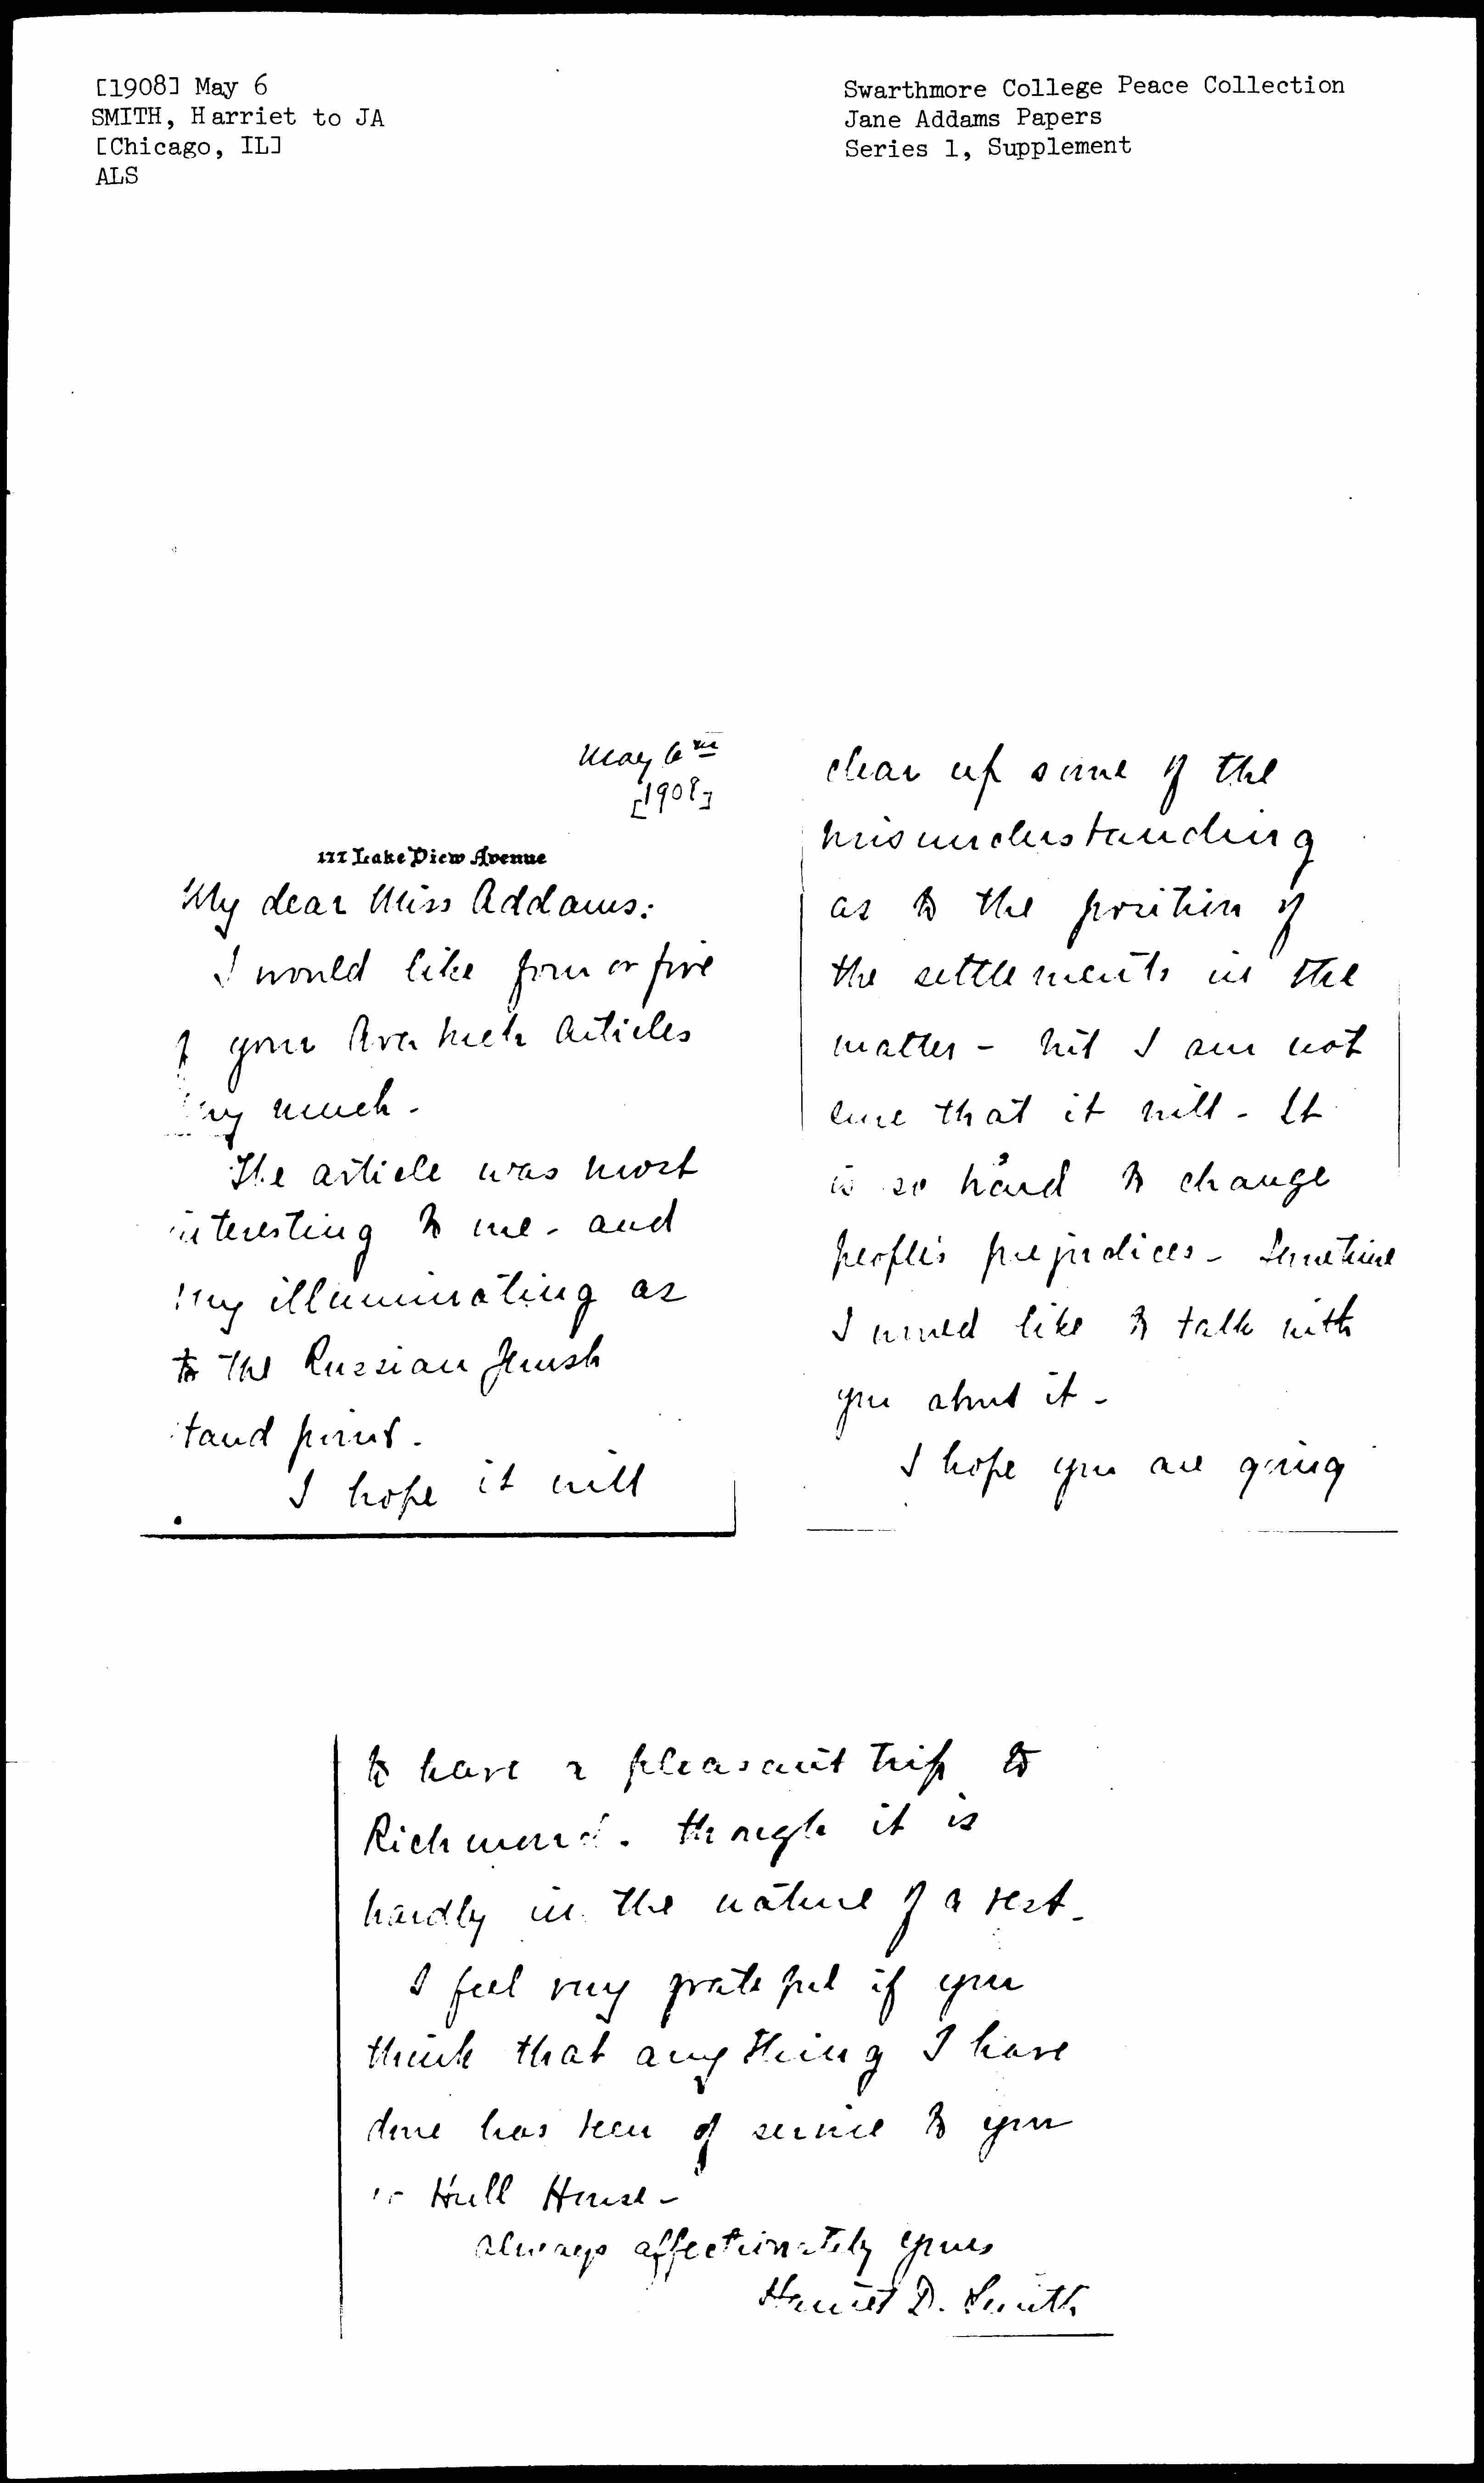 [1908] May 6
SMITH, Harriet to JA
[Chicago, IL]
ALS
Swarthmore College Peace Collection
Jane Addams Papers
Series 1, Supplement
May 6th
[1908]
111 Lake View Avenue
My dear Miss Addams:
I would like four or five
of your Averbuch Articles
very much -
The article was most
interesting to me - and
very illuminating as
to the Russian Jewish
stand point.
I hope it will
clear up some of the
misunderstanding
as to the position of
the settlements in the
matter - but I am not
sure that it will - It
is so hard to change
people's prejudices - Sometime
I would like to talk with
you about it -
I hope you are going
to have a pleasant trip to
Richmond. though it is
hardly in the nature of a rest -
I feel very grateful if you
think that anything I have
done has been of service to you
or Hull House -
Always affectionately yours
Harriet D. Smith